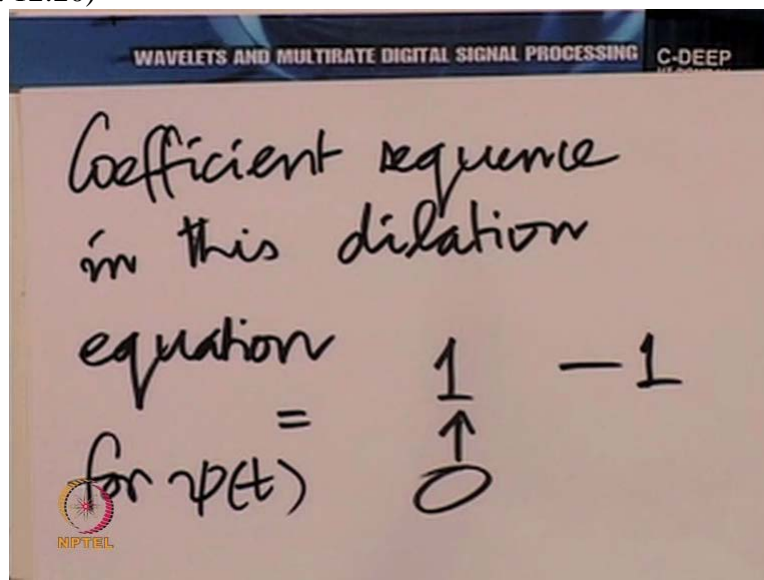 12:26)
WAVELETS AND MULTIRATE DIGITAL SIGNAL PROCESSING C-DEEP
Coefficient sequence
in this dilation
equation = 1 -1
↑
for ψ(t) 0
NPTEL